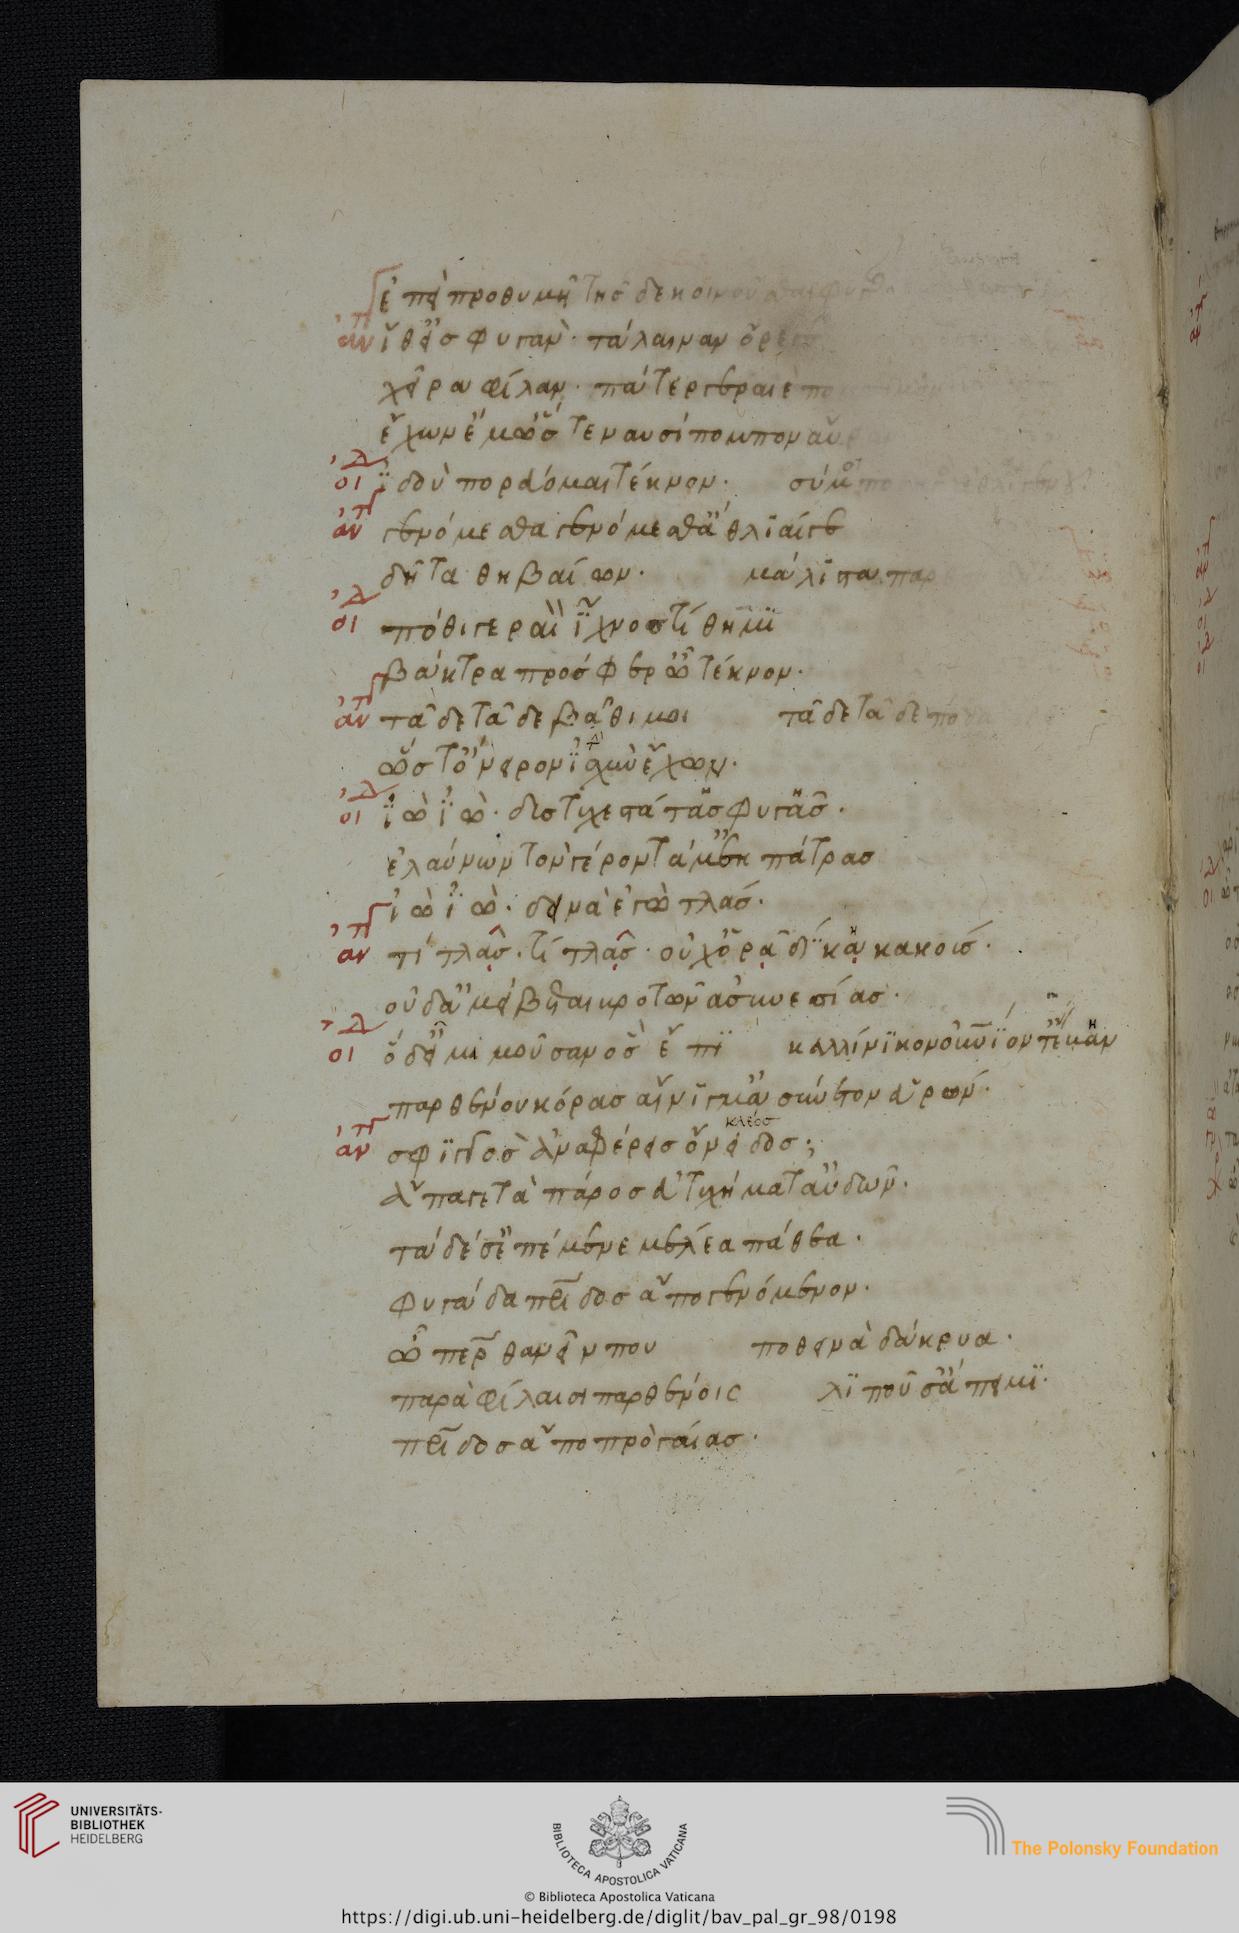 ἐπεὶ προθυμῆ τῆσδε κοινοῦσθαι φυγῆς
ἀντιγ ἴθ' εἰς φυγὰν τάλαιναν ὄρεγε
χεῖρα φίλαν· πάτερ γεραιὲ πο
ἔχων ἔμ' ὥστε ναυσίπομπον αὔραν
οἰδ ἰδοὺ πορεύομαι τέκνον· σύ μοι
ἀντιγ γενόμεθα γενόμεθ' ἄθλιαί γε
δῆτα θηβαίων· μάλιστα παρ
οἰδ πόθι γεραιὸν ἴχνος τίθημι
βάκτρα πρόσφερ' ὦ τέκνον·
ἀντιγ τᾶδε τᾶδε βᾶθί μοι τᾶδε τᾶδε πόδα
ὥστ' ὄνειρον ἰσχὺν ἔχων·
οἰδ ἰὼ ἰὼ· δυστυχεστάτας φυγὰς·
ἐλαύνων τὸν γέροντά μ' ἐκ πάτρας
ἰὼ ἰὼ· δεινὰ ἐγὼ τλάς·
ἀντιγ τί τλὰς· τί τλὰς· οὐχ ὁρᾷ δίκα κακούς·
οὐδ' ἀμείβεται βροτῶν ἀσυνεσίας·
οἰδ ὅδ' εἰμὶ μοῦσαν ὃς ἐπὶ καλλίνικον οὐράνιον
παρθένου κόρας αἴνιγμ' ἀσύνετον εὑρών·
κλέος
ἀντιγ σφιγγὸς ἀναφέρεις ὄνειδος;
ἄπαγε τὰ πάρος εὐτυχήματ' αὐδῶν·
τάδε σ' ἐπέμενε μέλεα πάθεα·
φυγάδα πατρίδος ἄπο γενόμενον·
ὦ πάτερ θανεῖν που ποθεινὰ δάκρυα·
παρὰ φίλαισι παρθένοις λιποῦσ' ἄπειμι·
πατρίδος ἄπο πρὸ γαίας·
UNIVERSITÄTS-
BIBLIOTHEK
HEIDELBERG
BIBLIOTECA APOSTOLICA VATICANA
The Polonsky Foundation
© Biblioteca Apostolica Vaticana
https://digi.ub.uni-heidelberg.de/diglit/bav_pal_gr_98/0198